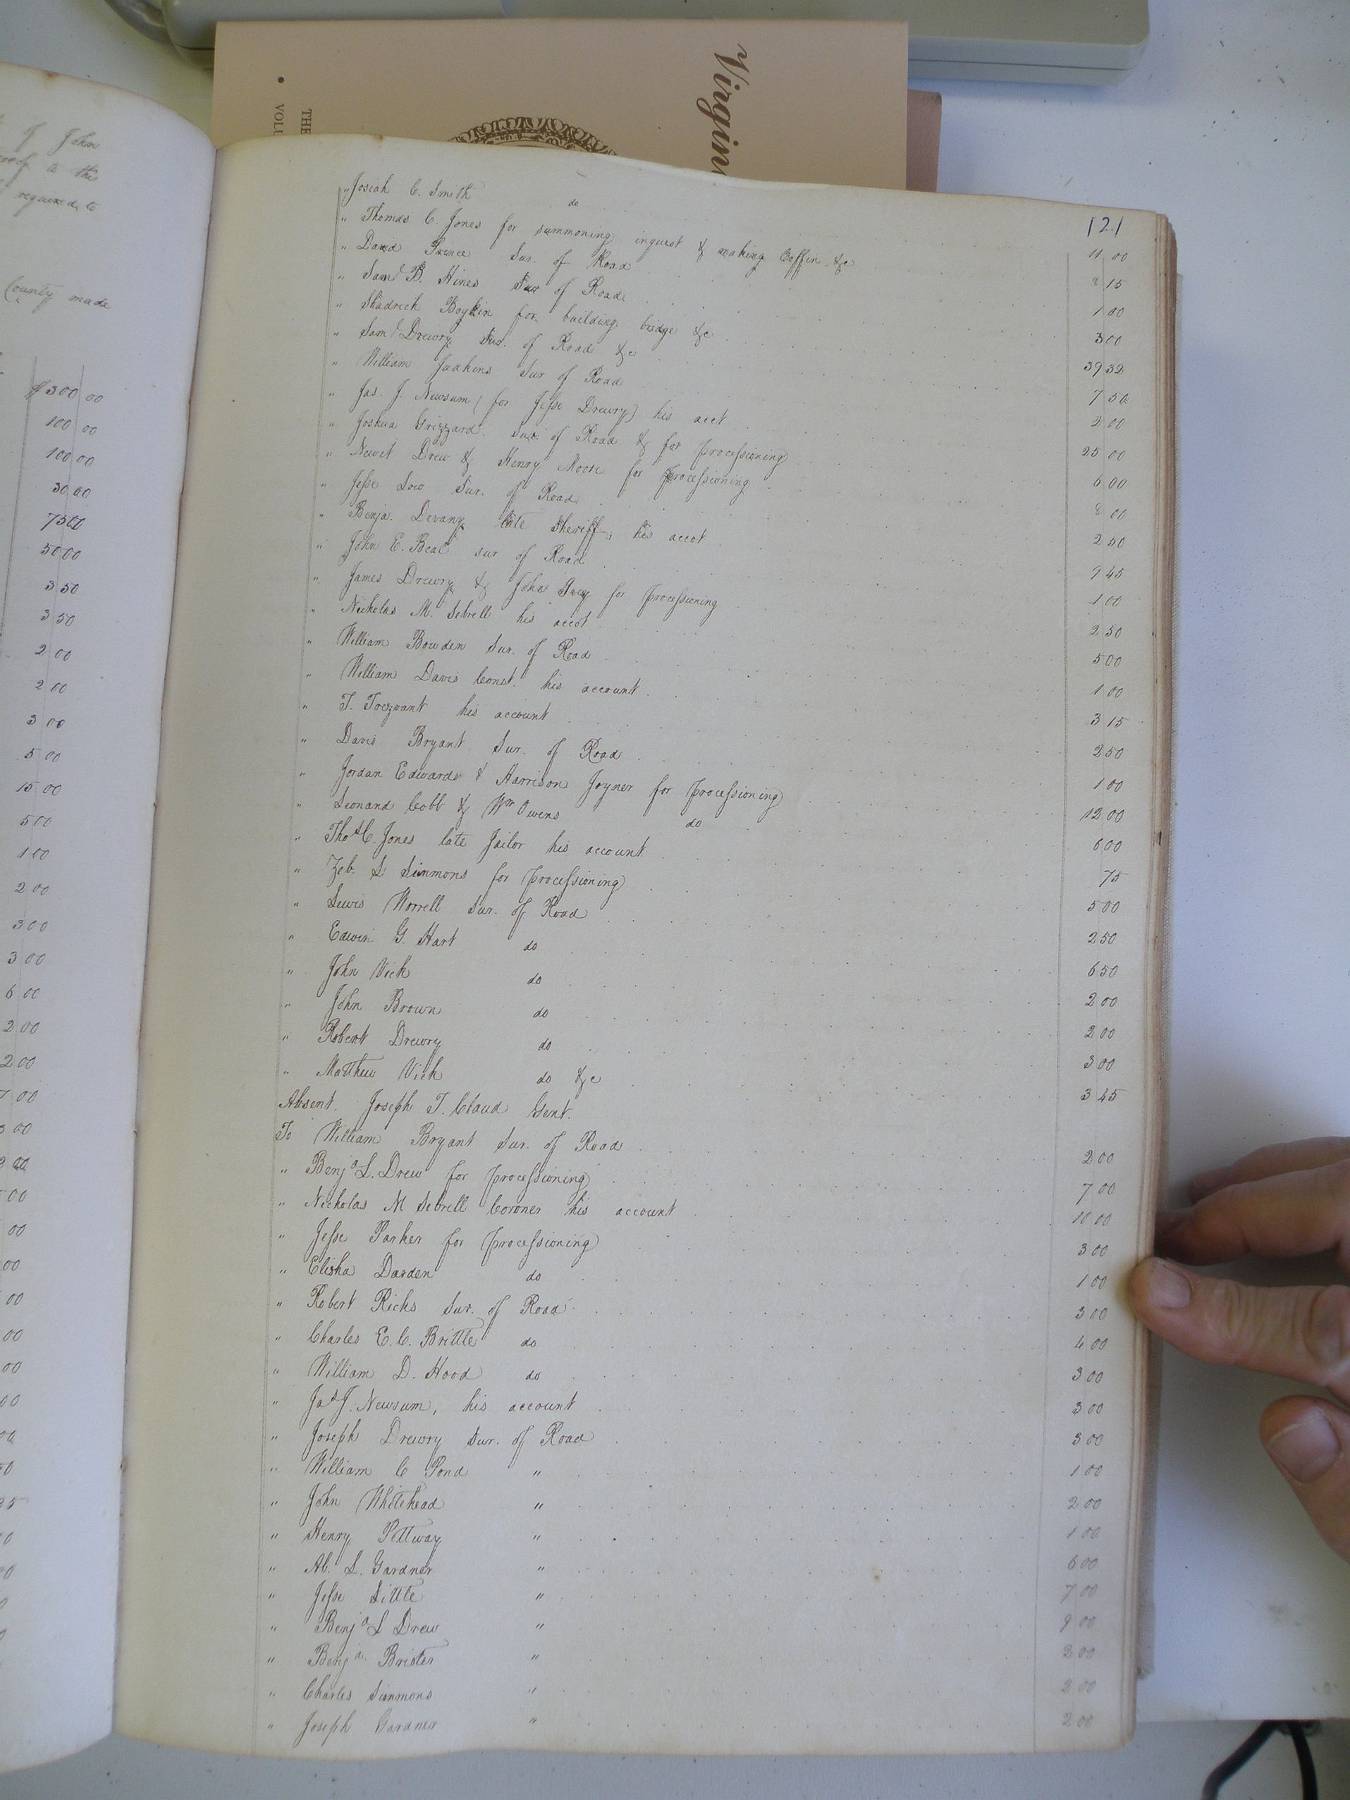 Virgin
THE
VOL
of John
to the
required to
County made
$300 00
100 00
100 00
30 00
75 00
50 00
3 50
3 50
2 00
2 00
3 00
5 00
15 00
5 00
1 00
2 00
3 00
3 00
6 00
2 00
2 00
121
" Josiah C. Smith do 11 00
" Thomas C. Jones for summoning inquest & making Coffin &c 2 15
" David Prince Sur. of Road 1 00
" Saml B. Hines Sur of Road 3 00
" Shadrick Boykin for building bridge &c 39 32
" Saml Drewry Sur. of Road &c 7 50
" William Judkins Sur of Road 2 00
" Jas. J. Newsum (for Jesse Drewry) his acct 25 00
" Joshua Grizzard Sur. of Road & for processioning 6 00
" Newit Drew & Henry Moore for processioning 2 00
" Jesse Low Sur. of Road 2 50
" Benja. Devany late Sheriff, his accot 9 45
" John E. Beal Sur of Road 1 00
" James Drewry & John Gray for processioning 2 50
" Nicholas M. Sebrell his accot 5 00
" William Bowden Sur. of Road 1 00
" William Davis Const. his account 3 15
" T. Trezvant his account 2 50
" Davis Bryant Sur. of Road 1 00
" Jordan Edwards & Harrison Joyner for processioning 12 00
" Leonard Cobb & Wm Owens do 6 00
" Thos C. Jones late Jailor his account 75
" Zeb. S Simmons for processioning 5 00
" Lewis Worrell Sur. of Road 2 50
" Edwin G. Hart do 6 50
" John Vick do 2 00
" John Brown do 2 00
" Robert Drewry do 3 00
" Matthew Vick do &c 3 45
Absent Joseph T. Claud Gent.
To William Bryant Sur. of Road 2 00
" Benja L. Drew for processioning 7 00
" Nicholas M Sebrell Coroner his account 10 00
" Jesse Parker for processioning 3 00
" Elisha Darden do 1 00
" Robert Ricks Sur. of Road 3 00
" Charles E. C. Brittle do 4 00
" William D. Hood do 3 00
" Jas J. Newsum, his account 3 00
" Joseph Drewry Sur. of Road 3 00
" William C Pond " 1 00
" John Whitehead " 2 00
" Henry Pettway " 1 00
" Ab. L. Gardner " 6 00
" Jesse Little " 7 00
" Benja L Drew " 9 00
" Benja Brister " 2 00
" Charles Simmons " 2 00
" Joseph Gardner " 2 00